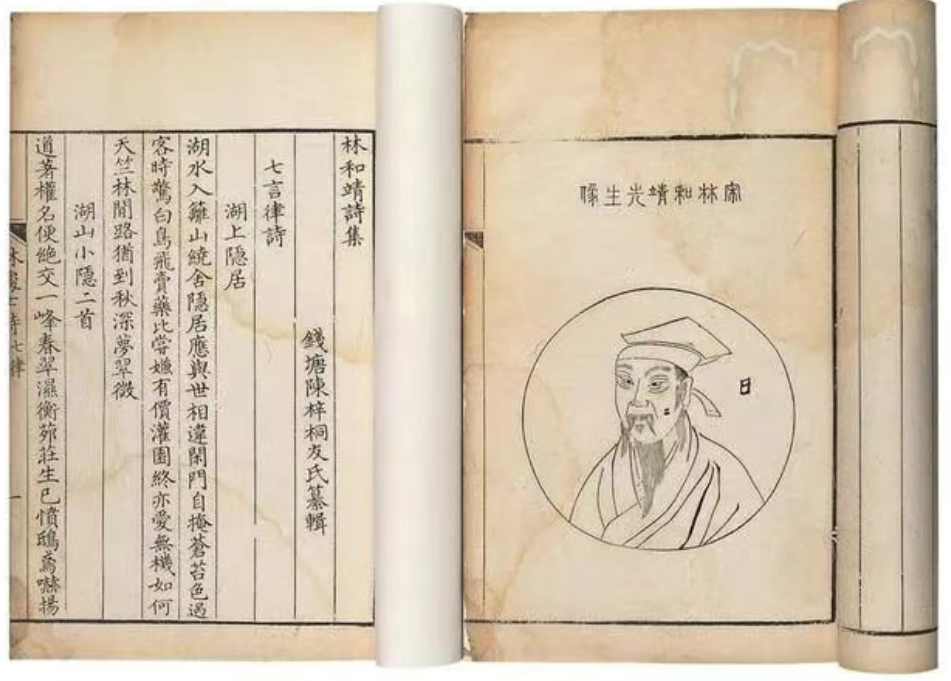 宋林和靖先生像
日
林和靖詩集
錢塘陳梓桐友氏纂輯
七言律詩
湖上隱居
湖水入籬山繞舍隱居應與世相違閑門自掩蒼苔色過
客時驚白鳥飛賣藥比嘗嫌有價灌園終亦愛無機如何
天竺林間路猶到秋深夢翠微
湖山小隱二首
道著權名便絕交一峰春翠濕衡茆莊生已憤鴟鳶嚇揚
七律
一